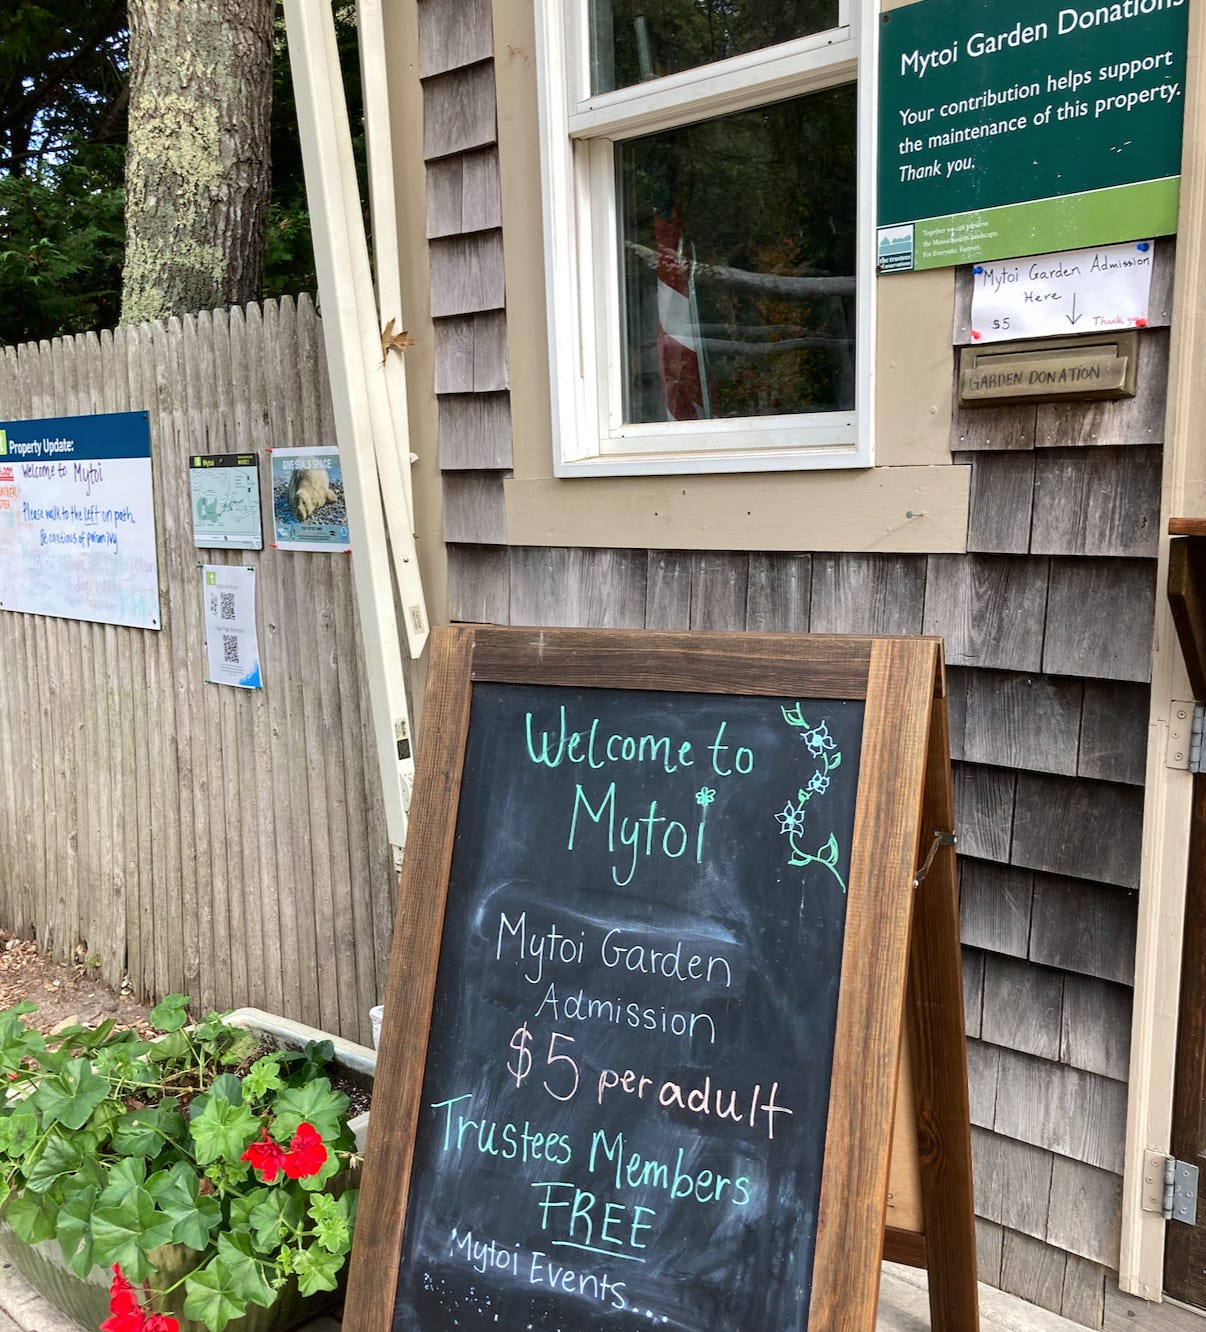 Mytoi Garden Donations
Your contribution helps support
the maintenance of this property.
Thank you.
Together we can preserve
the Massachusetts landscape.
For Everyone. Forever.
the trustees
Mytoi Garden Admission
Here
$5
Thank you
GARDEN DONATION
t Property Update:
Welcome to Mytoi
Please walk to the left on path,
Be cautious of poison ivy
Mytoi
GIVE SEALS SPACE
Welcome to
Mytoi
Mytoi Garden
Admission
$5 per adult
Trustees Members
FREE
Mytoi Events...